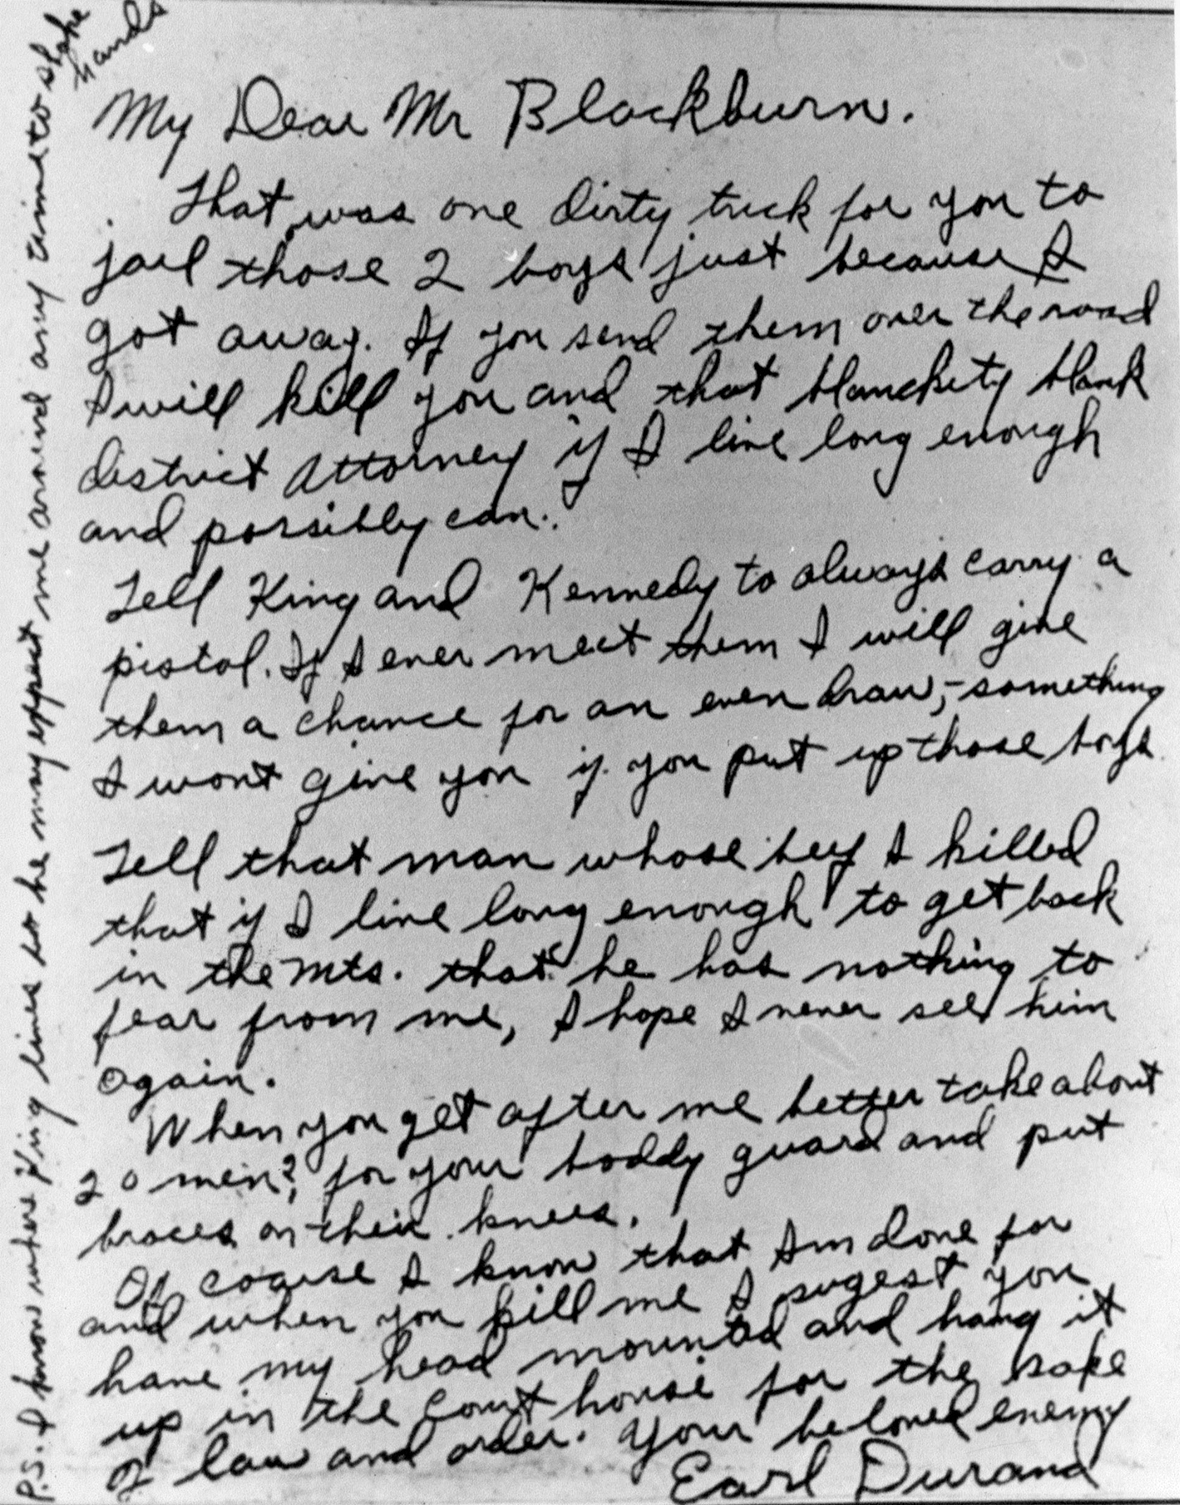 My Dear Mr Blackburn.
That was one dirty trick for you to
jail those 2 boys just because I
got away. If you send them over the road
I will kill you and that blanckety blank
district attorney if I live long enough
and possibly can.
Tell King and Kennedy to always carry a
pistol. If I ever meet them I will give
them a chance for an even draw,- something
I wont give you if you put up those boys.
Tell that man whose beef I killed
that if I live long enough to get back
in the mts. that he has nothing to
fear from me, I hope I never see him
again.
When you get after me better take about
20 men?, for your boddy guard and put
braces on their knees.
Of coarse I know that Im done for
and when you kill me I sugest you
have my head mounted and hang it
up in the court house for the sake
of law and order. Your beloved enemy
Earl Durand
P.S. I know where King lives so he may expect me around any time to shake
hands